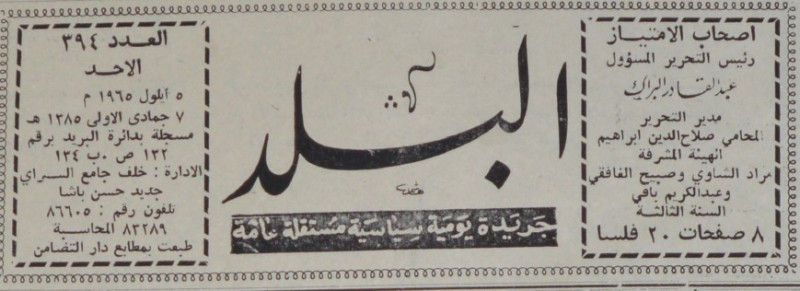 اصحاب الامتياز
رئيس التحرير المسؤول
عبدالقادر البراك
مدير التحرير
المحامي صلاح الدين ابراهيم
الهيئة المشرفة
مراد الشاوي وصبيح الغافقي
وعبدالكريم بافي
السنة الثالثة
٨ صفحات ٢٠ فلسا
البلد
جريدة يومية سياسية مستقلة عامة
العدد ٣٩٤
الاحد
٥ أيلول ١٩٦٥ م
٧ جمادى الاولى ١٣٨٥ هـ
مسجلة بدائرة البريد برقم
١٣٢ ص.ب ١٣٤
الادارة : خلف جامع السراي
جديد حسن باشا
تلفون رقم : ٨٦٦٠٥
المحاسبة ٨٣٢٨٩
طبعت بمطابع دار التضامن